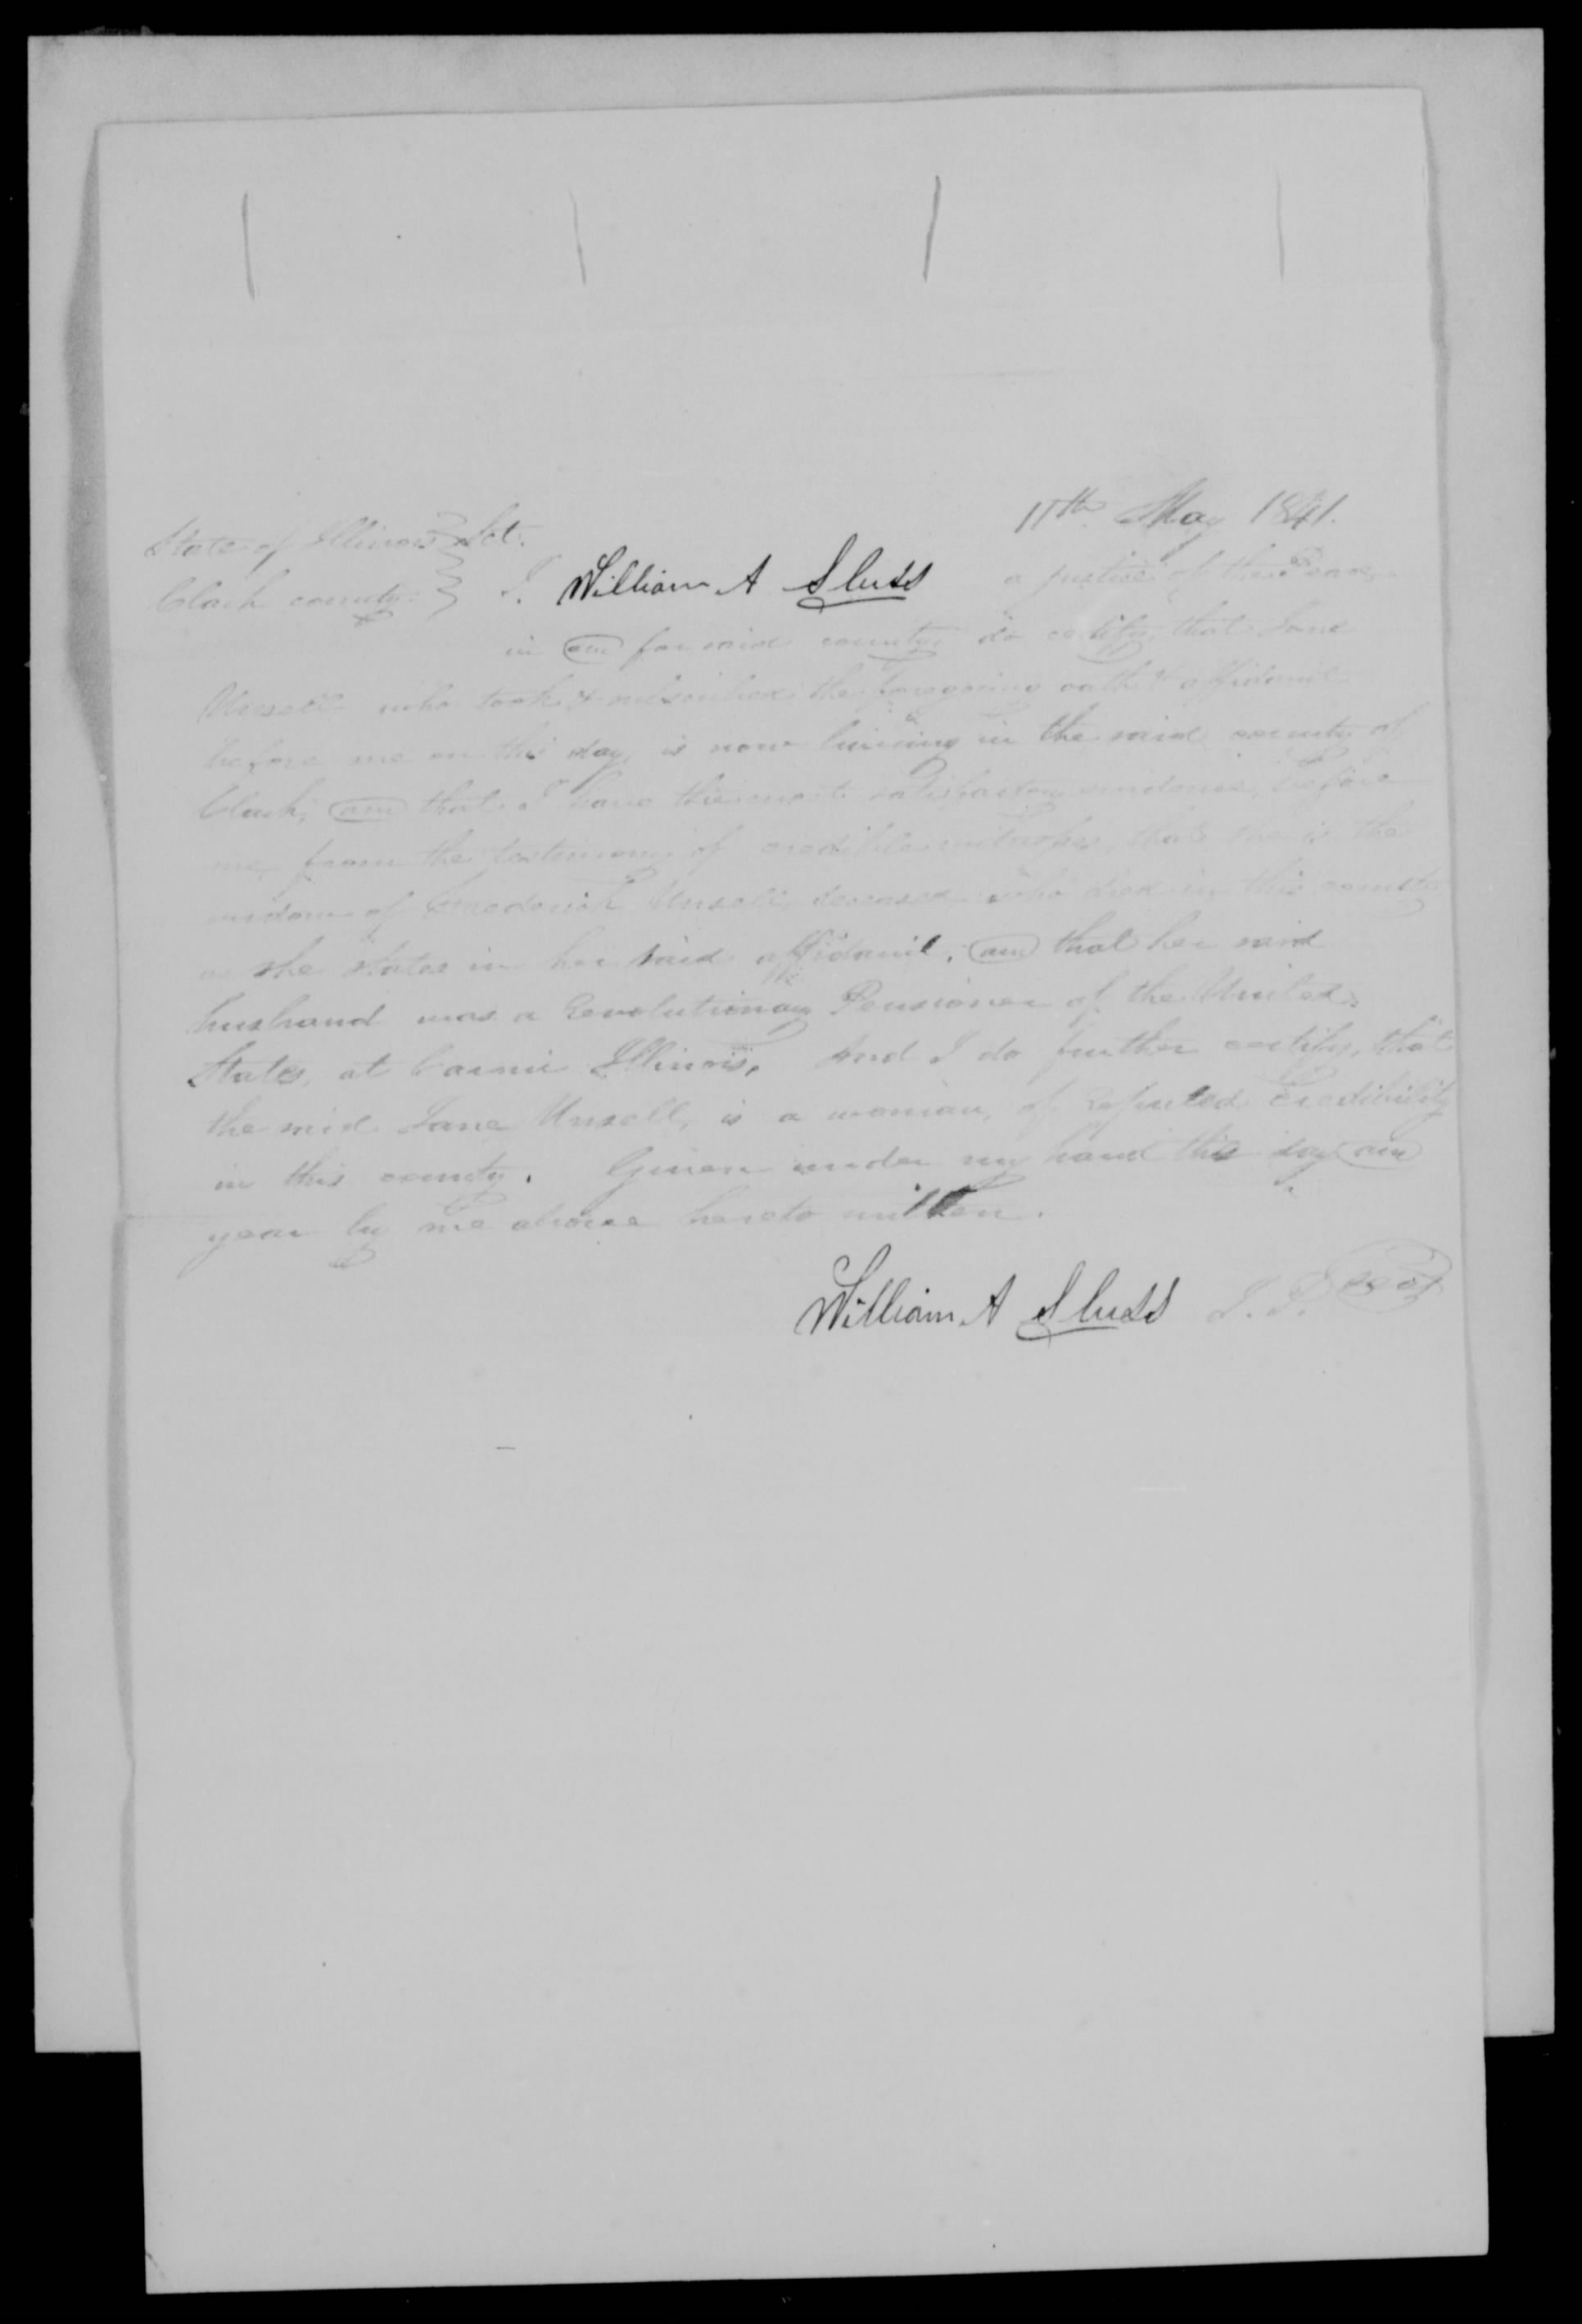 11th May 1841.
State of Illinois Sct.
Clark county. I. William A Sluss a justice of the Peace
in and for said county do certify, that Jane
Unsell who took & subscribed the foregoing oath & affidavit
before me on this day, is now living in the said county of
Clark, and that I have the most satisfactory evidence, before
me, from the testimony of credible witnesses, that she is the
widow of Frederick Unsell, deceased who died in this county
as she states in her said affidavit, and that her said
husband was a Revolutionary Pensioner of the United
States, at Carmi Illinois. And I do further certify, that
the said Jane Unsell, is a woman, of reputed Credibility
in this county. Given under my hand this day and
year by me above hereto written.
William A Sluss J. P. Seal